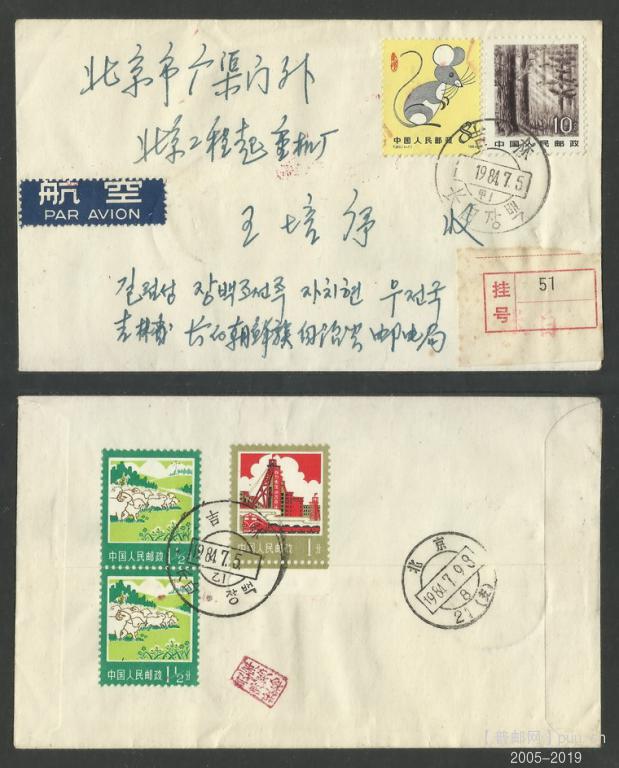 北京市广渠门外
北京工程起重机厂
航空
PAR AVION
王培 收
길림성 장백조선족 자치현 우전국
吉林省长白朝鲜族自治县邮电局
中国人民邮政
8
10
中国人民邮政
1984.7.5
挂号
51
中国人民邮政 1½分
中国人民邮政 1½分
中国人民邮政 1分
吉林
1984.7.5
12
장백
北京
1984.7.9
8
21
【普邮网】puu.cn
2005-2019